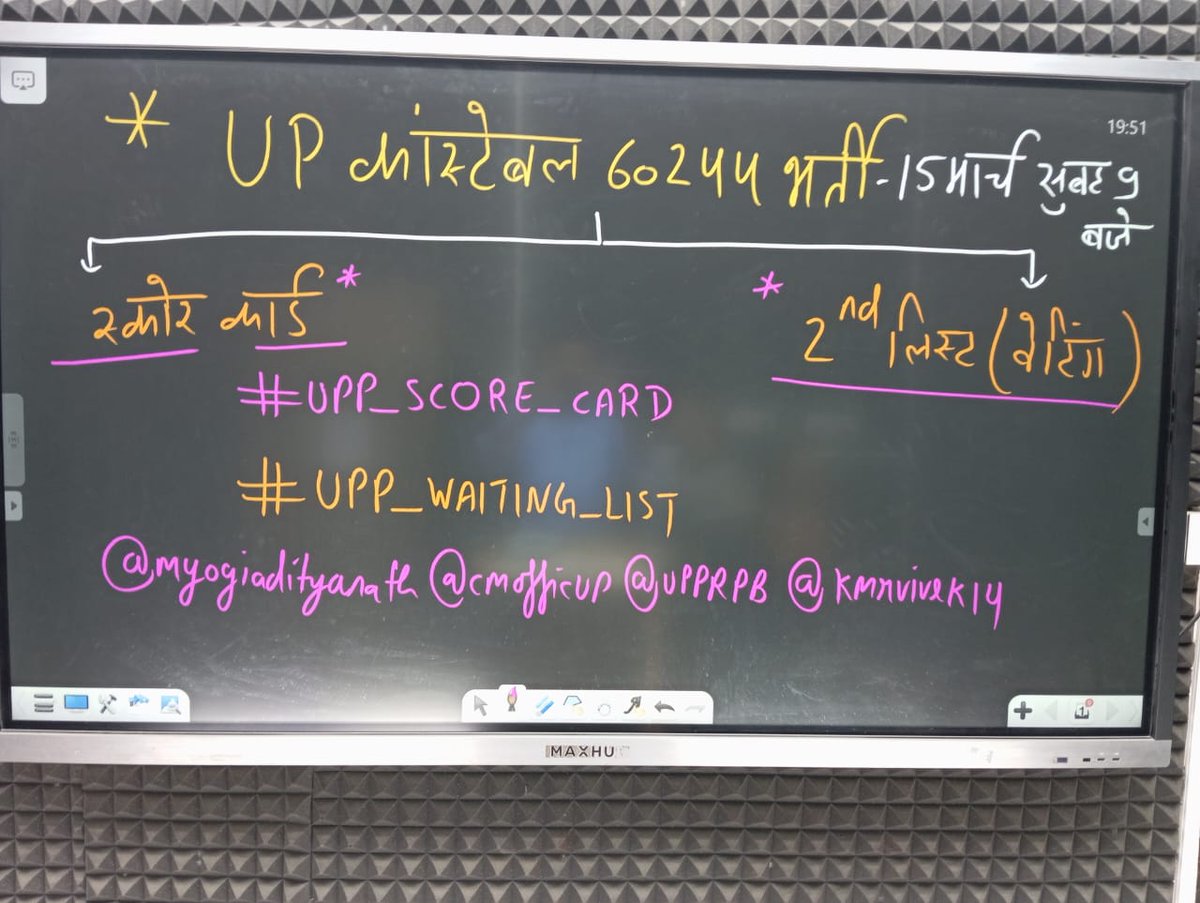 19:51
* UP कांस्टेबल 60244 भर्ती - 15 मार्च सुबह 9 बजे
स्कोर कार्ड *
* 2nd लिस्ट (वेटिंग)
#UPP_SCORE_CARD
#UPP_WAITING_LIST
@myogiadityanath @cmofficUP @UPPRPB @kmrvivek14
MAXHUB